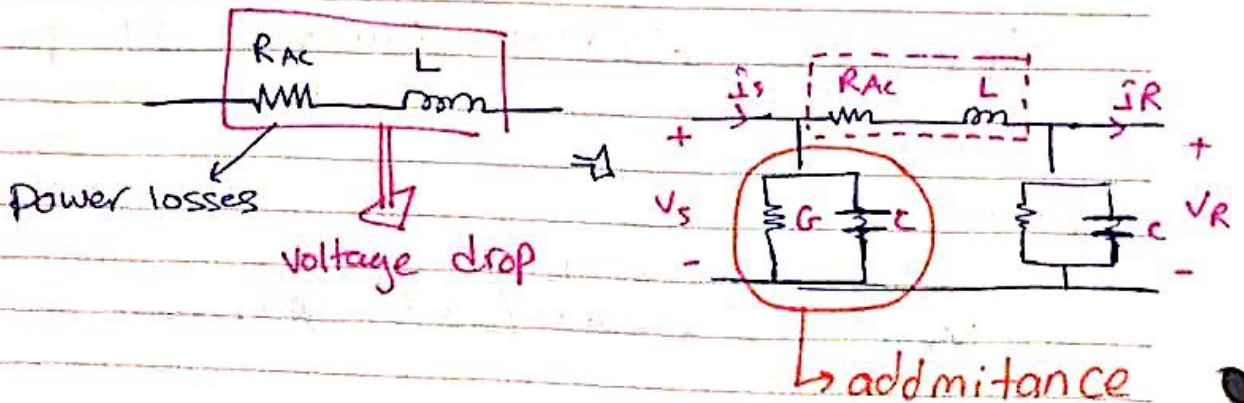 RAC L
Power losses
voltage drop
is RAC L iR
+ +
Vs G C C VR
- -
addmitance